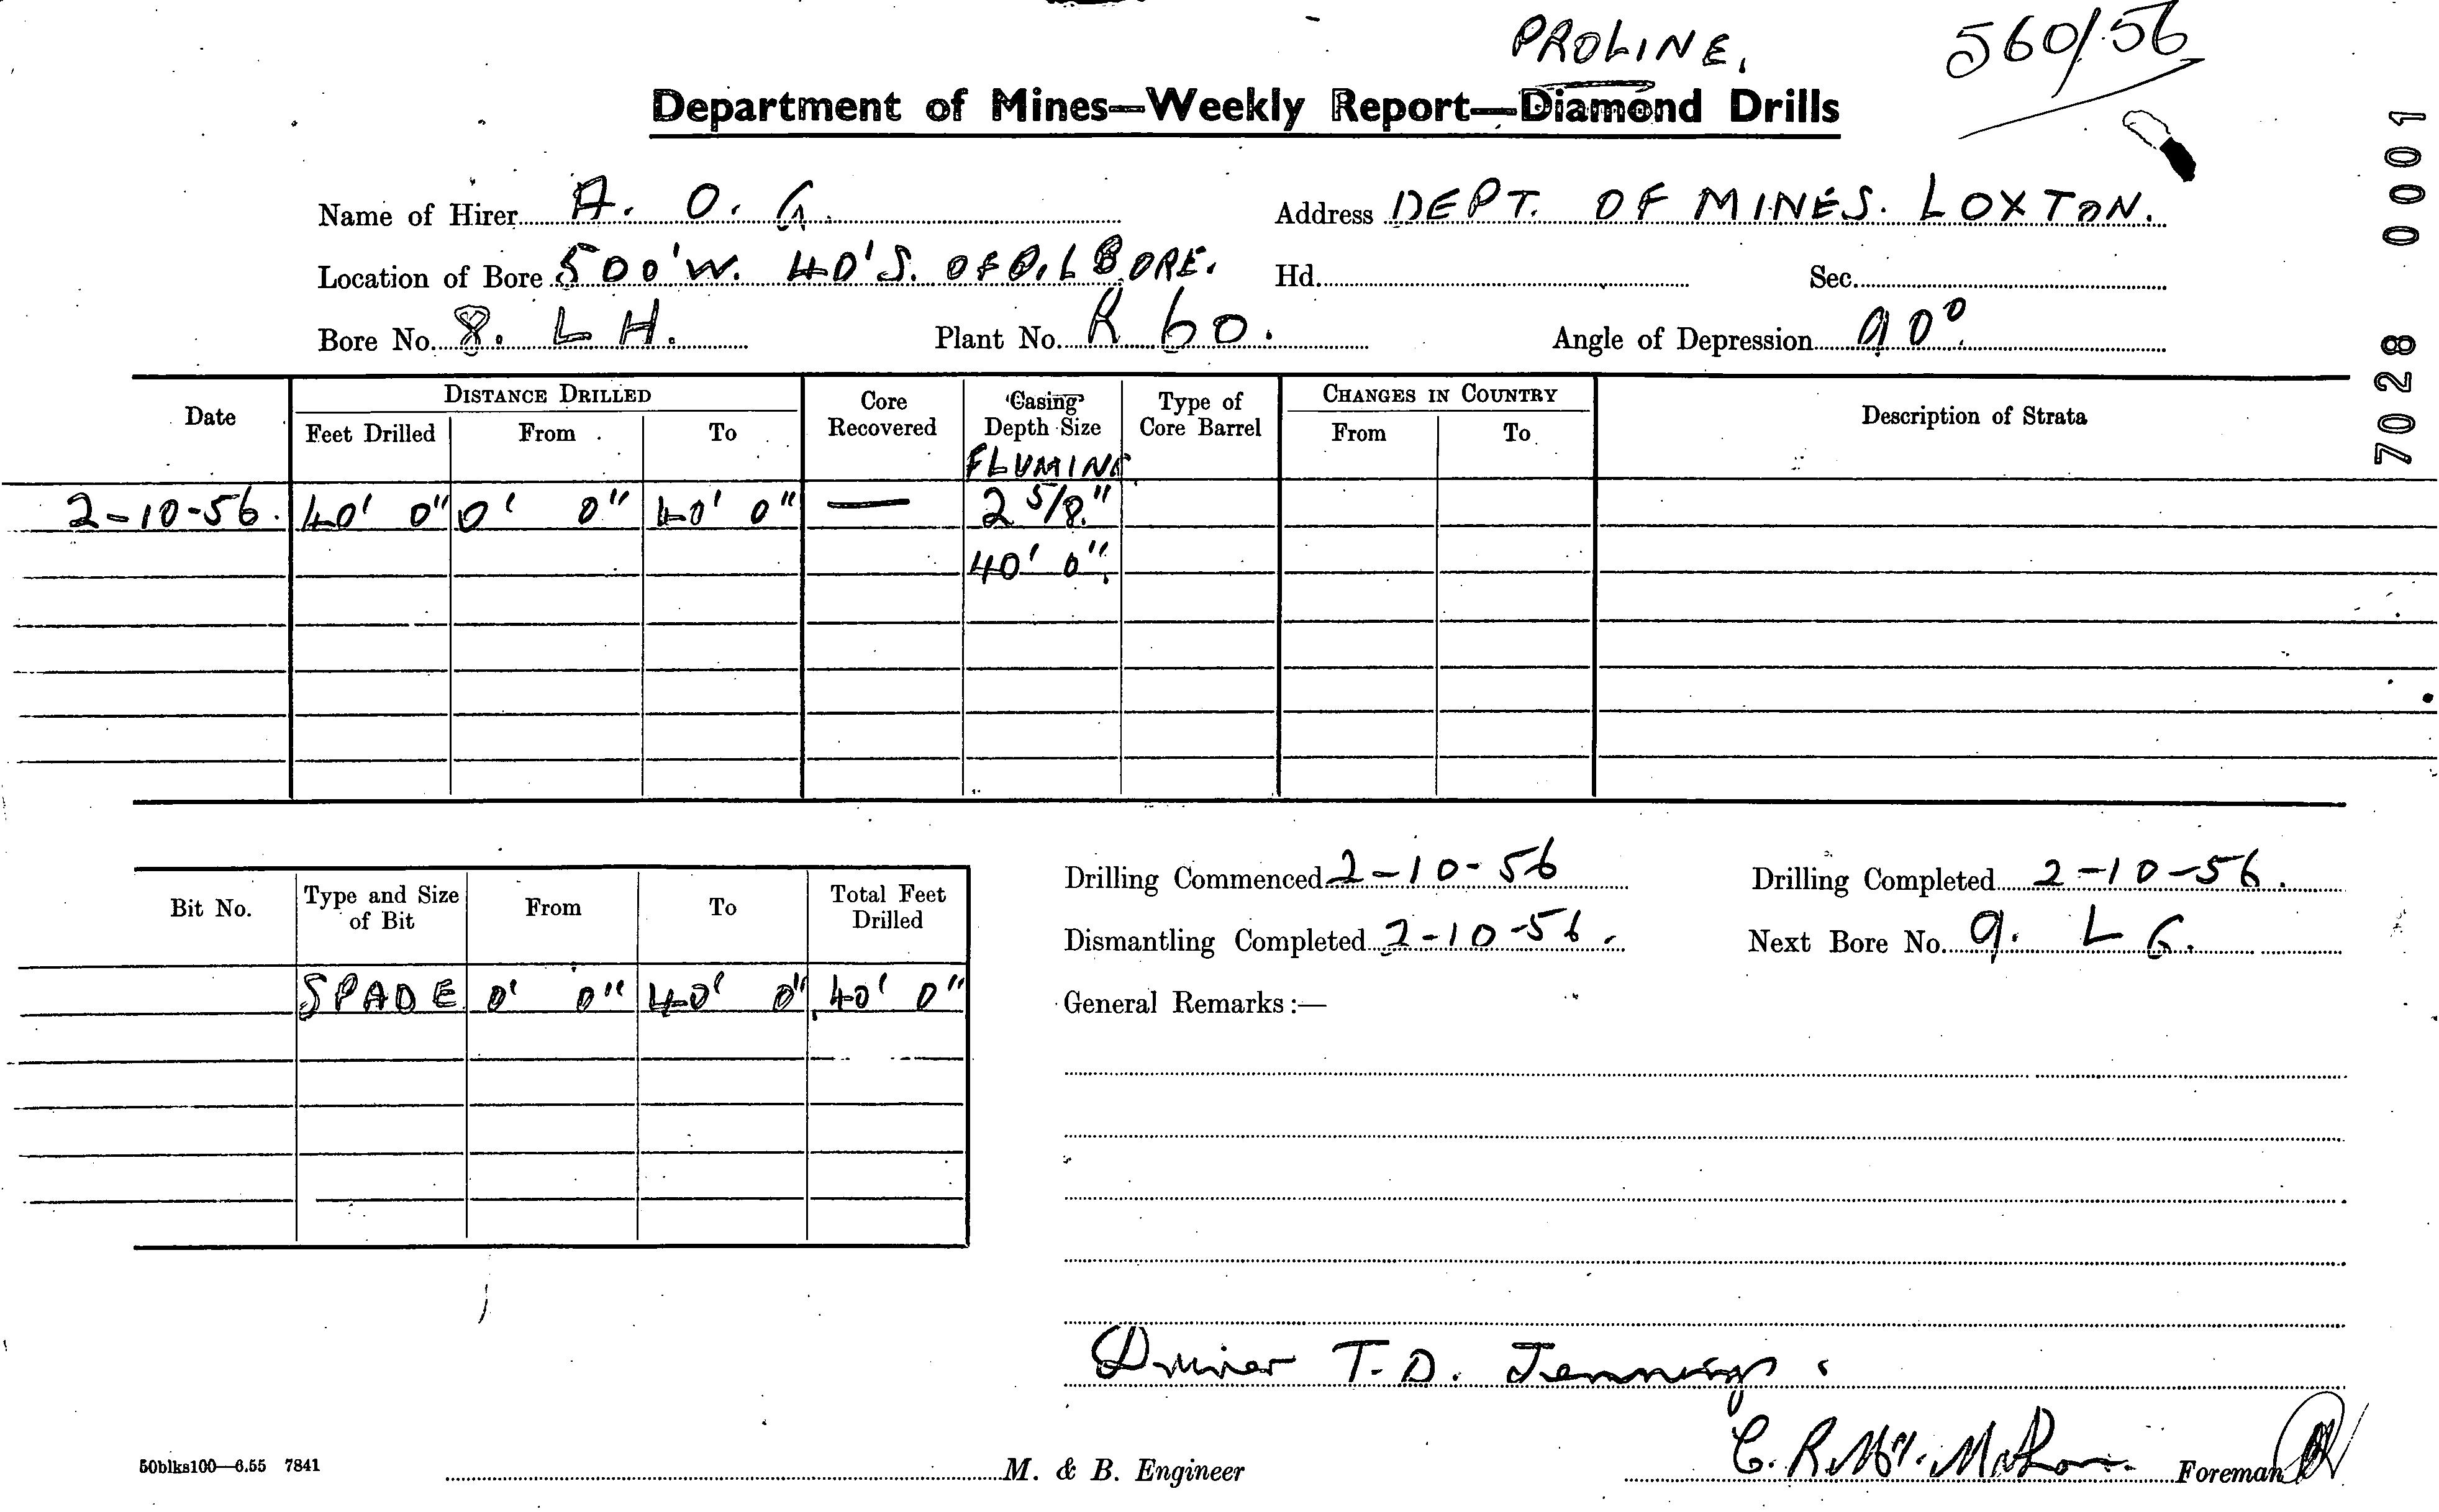 PROLINE. 560/56
Department of Mines—Weekly Report—Diamond Drills
7028 0001
Name of Hirer A. O. G. Address DEPT. OF MINES. LOXTON.
Location of Bore 500'W. 40'S. OF OIL BORE. Hd. Sec.
Bore No. 8. L H. Plant No. R 60. Angle of Depression 90°
Date DISTANCE DRILLED Core Recovered Casing Depth Size Type of Core Barrel CHANGES IN COUNTRY Description of Strata
Feet Drilled From To From To
FLUMING
2-10-56. 40' 0" 0' 0" 40' 0" — 2 5/8"
40' 0".
Drilling Commenced 2-10-56 Drilling Completed 2-10-56.
Bit No. Type and Size of Bit From To Total Feet Drilled
Dismantling Completed 2-10-56. Next Bore No. 9. L G.
SPADE 0' 0" 40' 0" 40' 0"
General Remarks:—
Driver T. D. Jennings.
C. R. Mc. Mahon. Foreman
50blks100—6.55 7841 M. & B. Engineer